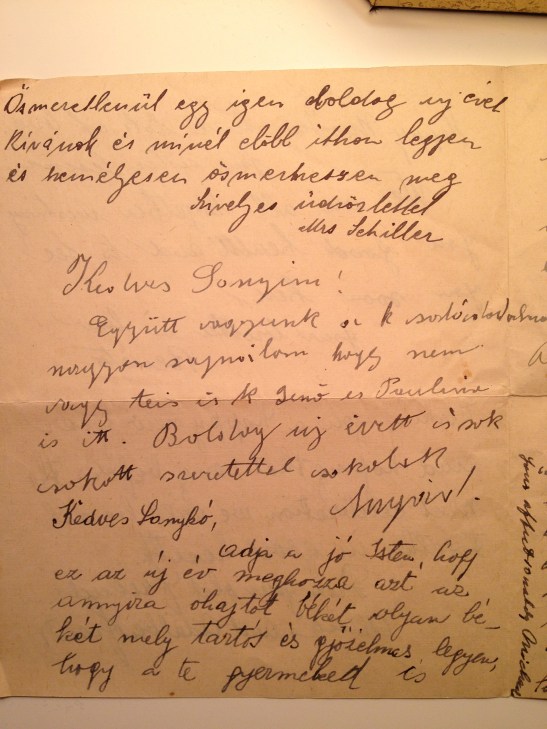 Ösmeretlenül egy igen boldog uj évet
kívánok és minél elöbb itthon legyen
és személyesen ösmerhessen meg
Szivélyes üdvözlettel
Mrs Schiller
Kedves Sanyim!
Együtt vagyunk a k
nagyon sajnálom hogy nem
vagy teis is k Jenö es Paulina
is itt. Boldog uj évett és sok
csokott szeretettel csokolak
Anyóis!
Kedves Sanykó,
Adja a jó Isten, hogy
ez az új év meghozza azt az
annyira óhajtót békét, olyan bé-
két mely tartós és győzelmes legyen,
hogy a te gyermeked is
Yours affectionately